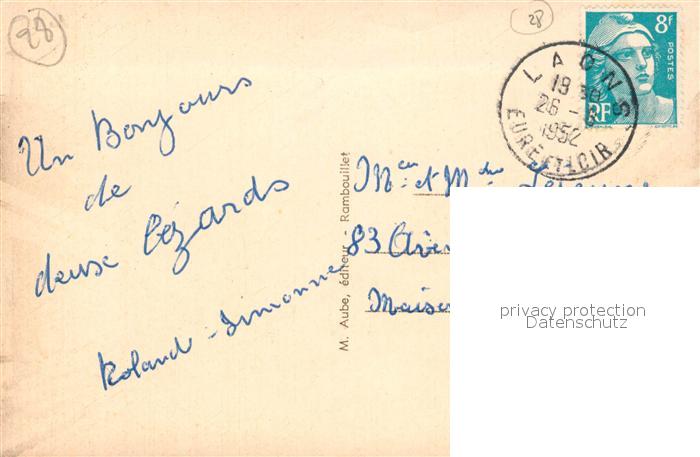 28
28
8f
POSTES
RF
LAONS
19 30
26 -
1952
EURE ET LOIR
Un Bonjours
de
deux lézards
Roland - Simonne
M. Aube, éditeur - Rambouillet
Mr et Mme
83
privacy protection
Datenschutz